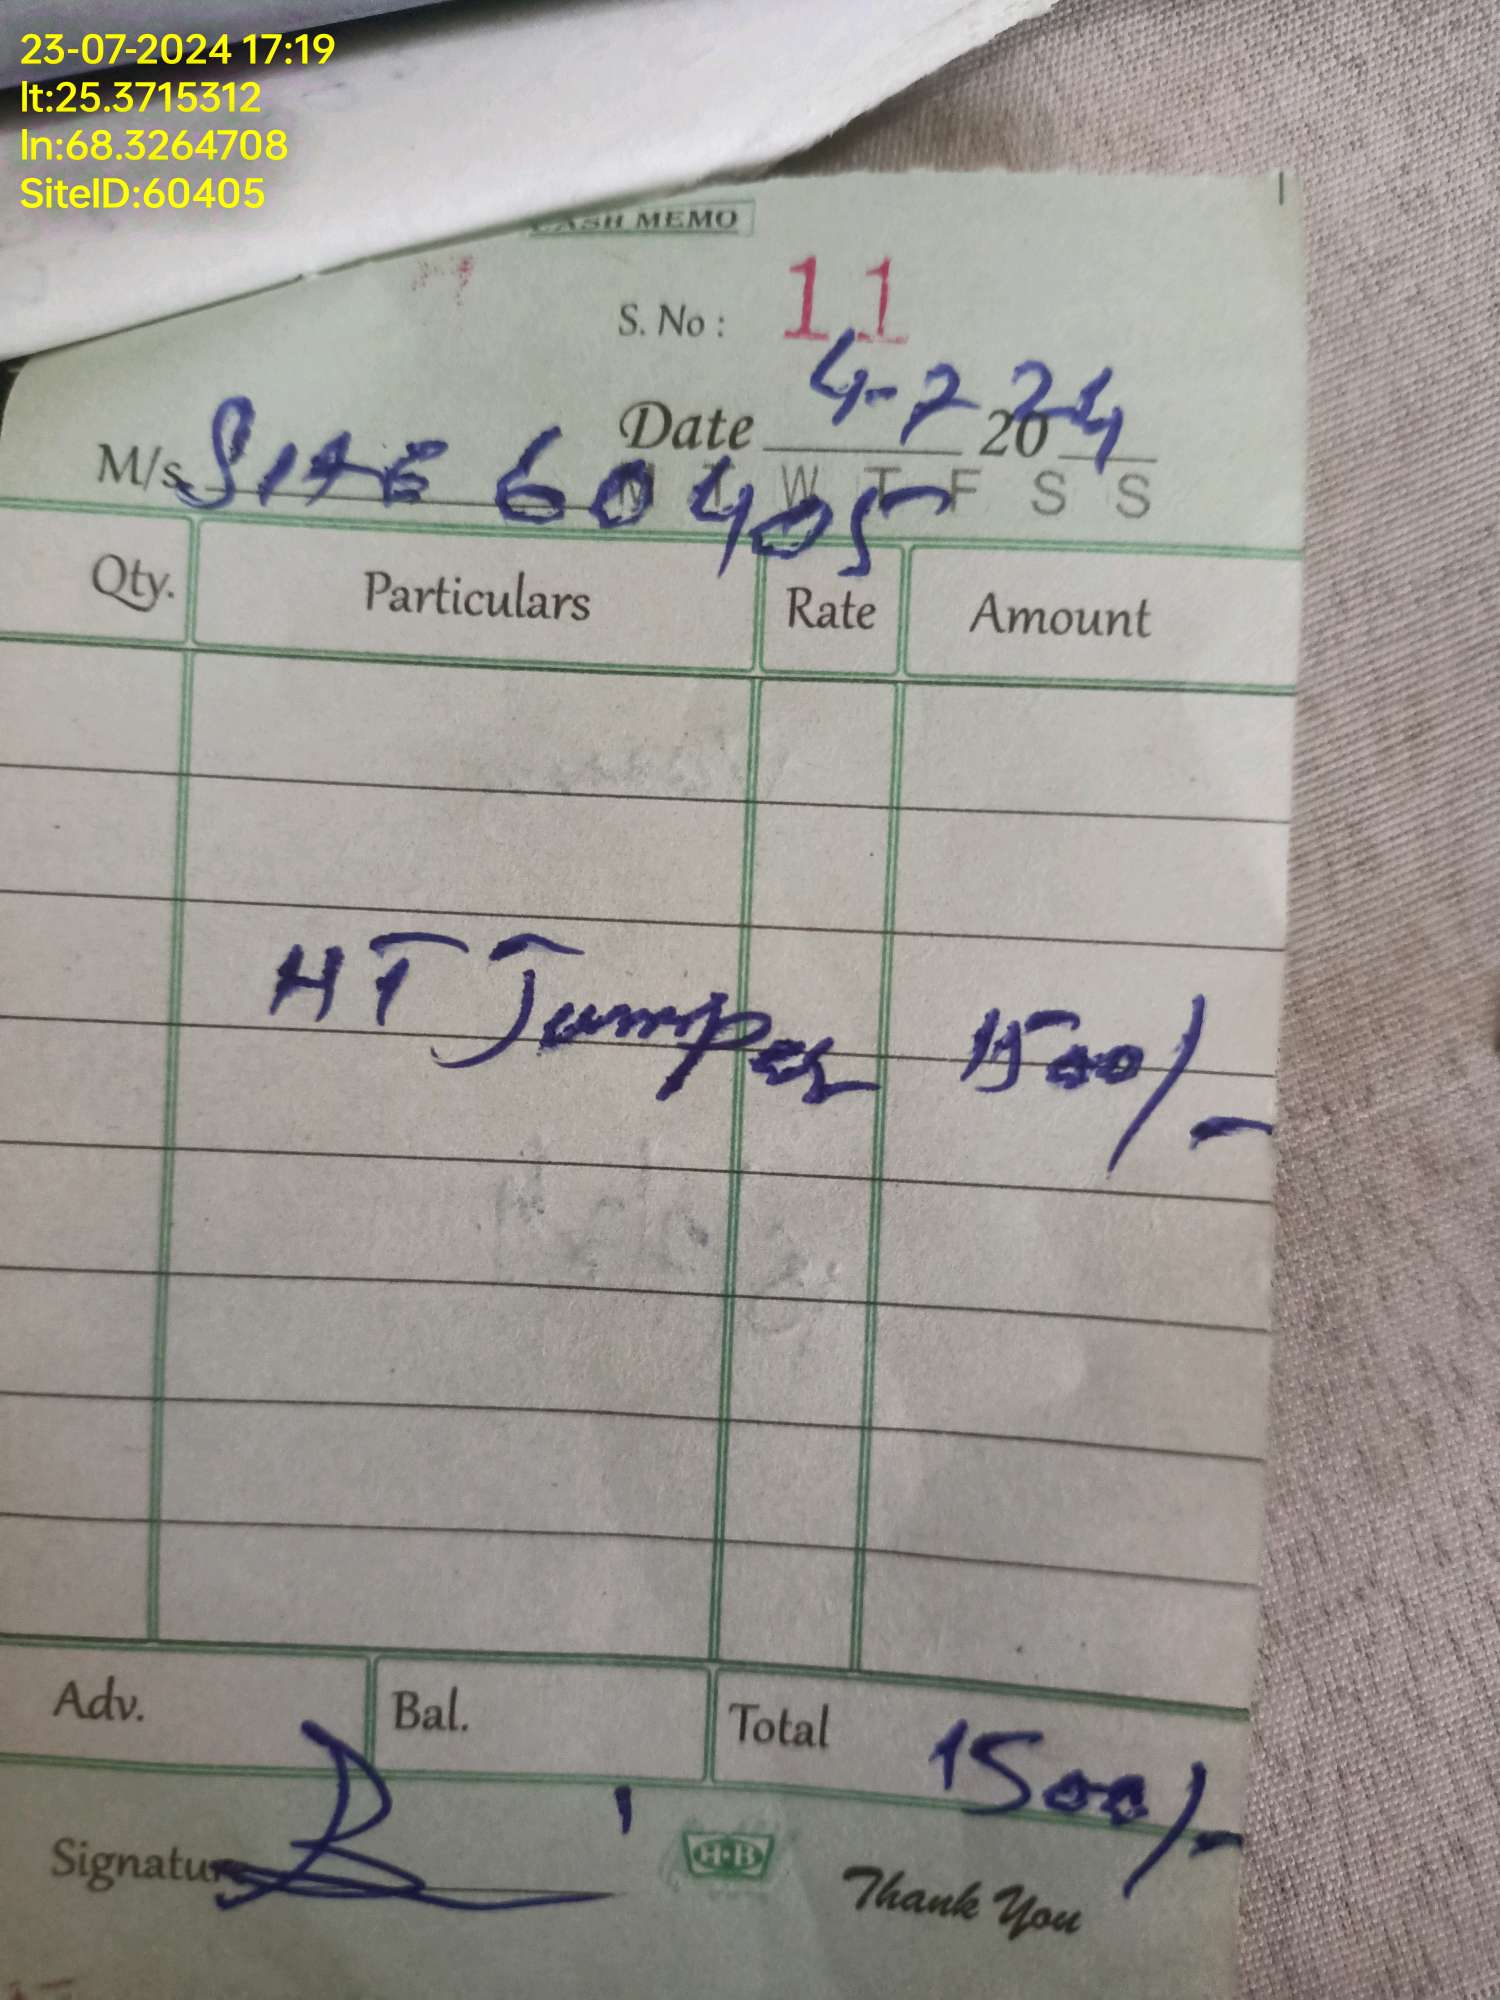 23-07-2024 17:19
lt:25.3715312
ln:68.3264708
SiteID:60405
CASH MEMO
S. No : 11
Date 4-7 2024
M/s. SITE 60405
M T W T F S S
Qty. Particulars Rate Amount
HT Jumper 1500/-
Adv. Bal. Total 1500/-
Signature
H·B
Thank You